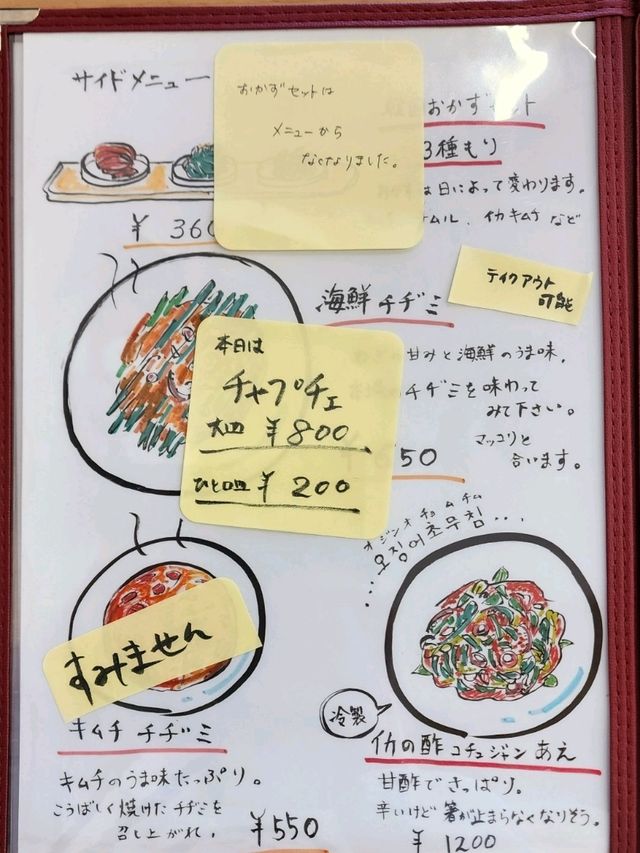 サイドメニュー
おかずセットは
メニューから
なくなりました。
おかずセット
3種もり
は日によって変わります。
ナムル、イカキムチなど
¥360
テイクアウト
可能
海鮮チヂミ
甘みと海鮮のうま味、
チヂミを味わって
みて下さい。
マッコリと
合います。
50
本日は
チャプチェ
大皿 ¥800
ひと口皿 ¥200
オジンオチョムチム
...오징어초무침...
すみません
キムチ チヂミ
キムチのうま味たっぷり。
こうばしく焼けたチヂミを
召し上がれ。
¥550
冷製
イカの酢コチュジャンあえ
甘酢でさっぱり。
辛いけど箸が止まらなくなりそう。
¥1200